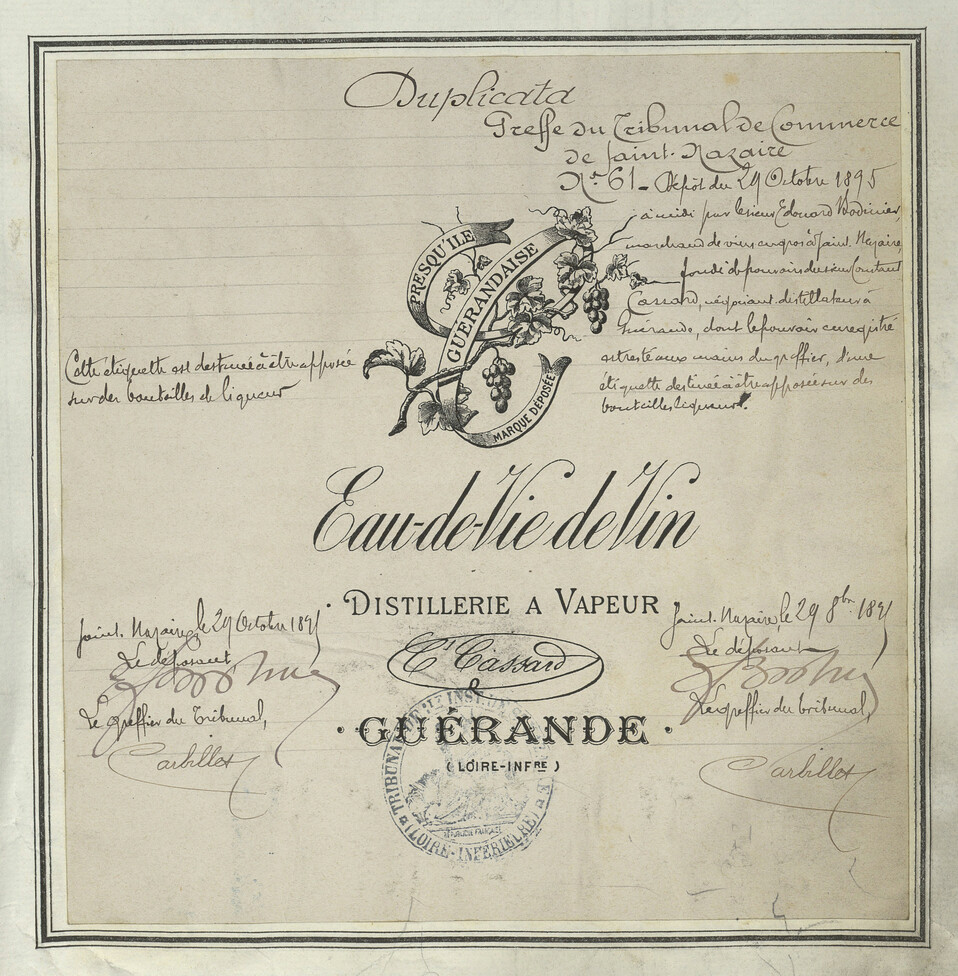 Duplicata
Greffe du Tribunal de Commerce
de Saint-Nazaire
No. 61 - Dépôt du 29 Octobre 1895
à midi par le sieur Edouard Bodinier,
marchand de vins en gros à Saint-Nazaire,
fondé de pouvoirs du sieur Constant
Cassard, négociant-distillateur à
Guérande, dont le pouvoir enregistré
est resté aux mains du greffier, d'une
étiquette destinée à être apposée sur des
bouteilles liqueurs.
PRESQU'ILE
GUÉRANDAISE
MARQUE DÉPOSÉE
Cette étiquette est destinée à être apposée
sur des bouteilles de liqueur
Eau-de-Vie de Vin
DISTILLERIE A VAPEUR
Ct Cassard
&
GUÉRANDE
(LOIRE-INFRE)
Saint-Nazaire, le 29 Octobre 1895
Le déposant,
Le greffier du Tribunal,
Carbillet
Saint-Nazaire, le 29 8bre 1895
Le déposant
Le greffier du tribunal,
Carbillet
TRIBUNAL
(LOIRE-INFÉRIEURE)